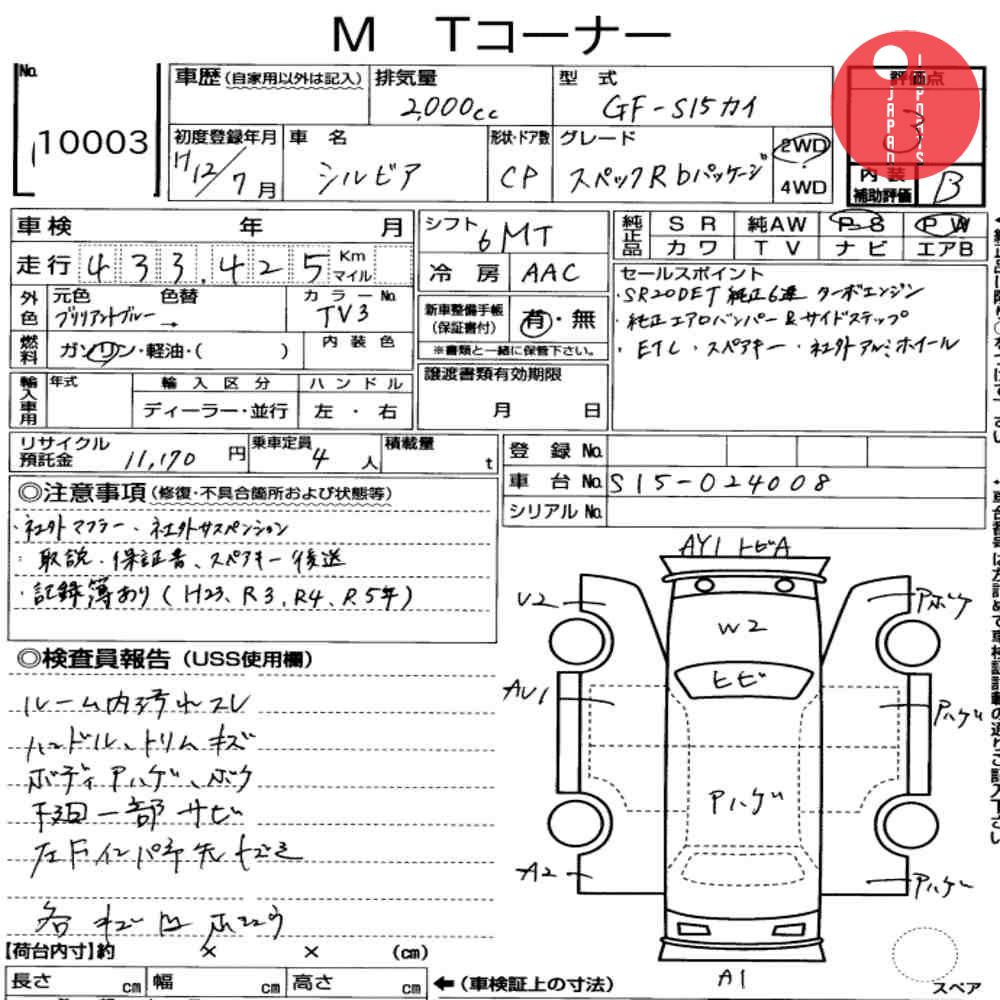 M Tコーナー
No. 10003
車歴(自家用以外は記入)
排気量 2,000cc
型式 GF-S15カイ
評価点 3
JAPAN IMPORTS
初度登録年月 H12/7月
車名 シルビア
形状・ドア数 CP
グレード スペックR bパッケージ
2WD
4WD
内装補助評価 B
車検 年 月
シフト 6MT
純正品 SR 純AW PS PW
カワ TV ナビ エアB
走行 433.425 Km マイル
冷房 AAC
セールスポイント
・SR20DET 純正6速 ターボエンジン
・純正エアロバンパー&サイドステップ
・ETC・スペアキー・社外アルミホイール
外色 元色 色替 カラーNo.
ブリリアントブルー→ TV3
新車整備手帳(保証書付) 有・無
※書類と一緒に保管下さい。
燃料 ガソリン・軽油・( ) 内装色
譲渡書類有効期限
月 日
輸入車用 年式 輸入区分 ハンドル
ディーラー・並行 左・右
リサイクル預託金 11,170円
乗車定員 4人
積載量 t
登録No.
車台No. S15-024008
シリアルNo.
◎注意事項(修復・不具合箇所および状態等)
・社外マフラー、社外サスペンション
・取説、保証書、スペアキー後送
・記録簿あり(H23、R3、R4、R5年)
◎検査員報告(USS使用欄)
ルーム内汚れスレ
ハンドル、トリムキズ
ボディPハゲ、ボケ
下回一部サビ
各キズ凹
AY1 トビA
U2
Pボケ
W2
ヒビ
AU1
Pハゲ
Pハゲ
A2
Pハゲ
A1
スペア
【荷台内寸】約 × × (cm)
長さ cm 幅 cm 高さ cm ←(車検証上の寸法)